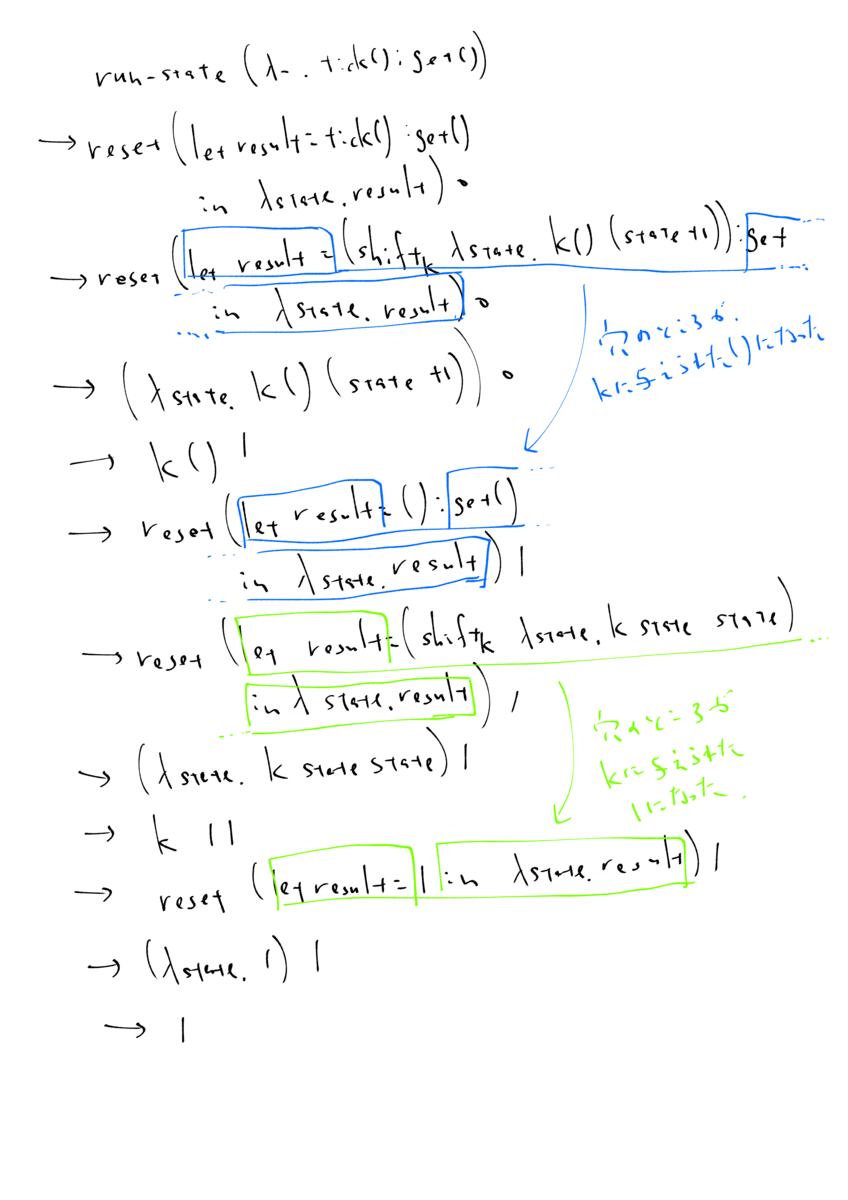 run-state (λ_. tick(); get())
→ reset (let result = tick() ; get()
in λstate. result) 0
→ reset (let result = (shift k λstate. k() (state+1)); get
in λstate. result) 0
穴のところが
kに与えられた()になった
→ (λstate. k() (state+1)) 0
→ k() 1
→ reset (let result = () ; get()
in λstate. result) 1
→ reset (let result = (shift k λstate. k state state)
in λstate. result) 1
穴のところが
kに与えられた
1になった.
→ (λstate. k state state) 1
→ k 1 1
→ reset (let result = 1 in λstate. result) 1
→ (λstate. 1) 1
→ 1